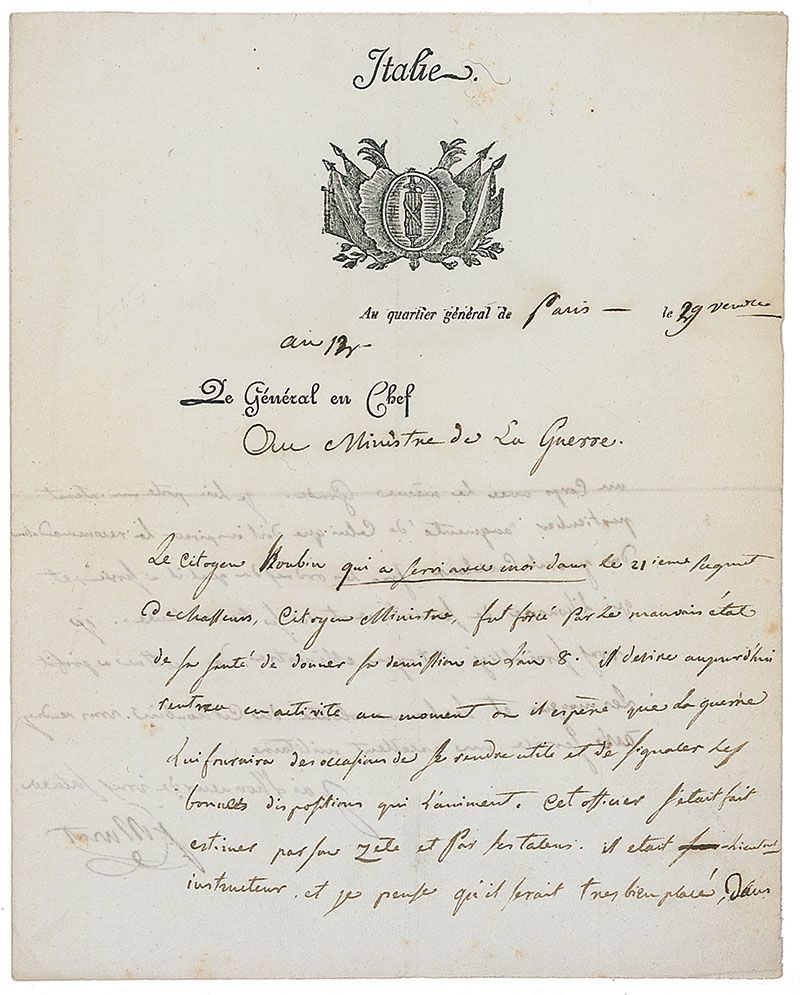 Italie.
Au quartier général de Paris — le 29 vendre
an 12 —
Le Général en Chef
Au Ministre de La Guerre.
Le Citoyen Roubin qui a servi avec moi dans le 21ieme Regnet
De chasseurs, Citoyen Ministre, fut forcé par le mauvais état
de sa santé de donner sa demission en L'an 8. il desire aujourd'hui
rentrer en activité au moment où il espére que La guerre
Lui fournira des occasions de se rendre utile et de signaler les
bonnes dispositions qui L'animent. Cet officier s'était fait
estimer par son zéle et Par ses talens. il était
instructeur, et je pense qu'il serait tres bien placé, Dans